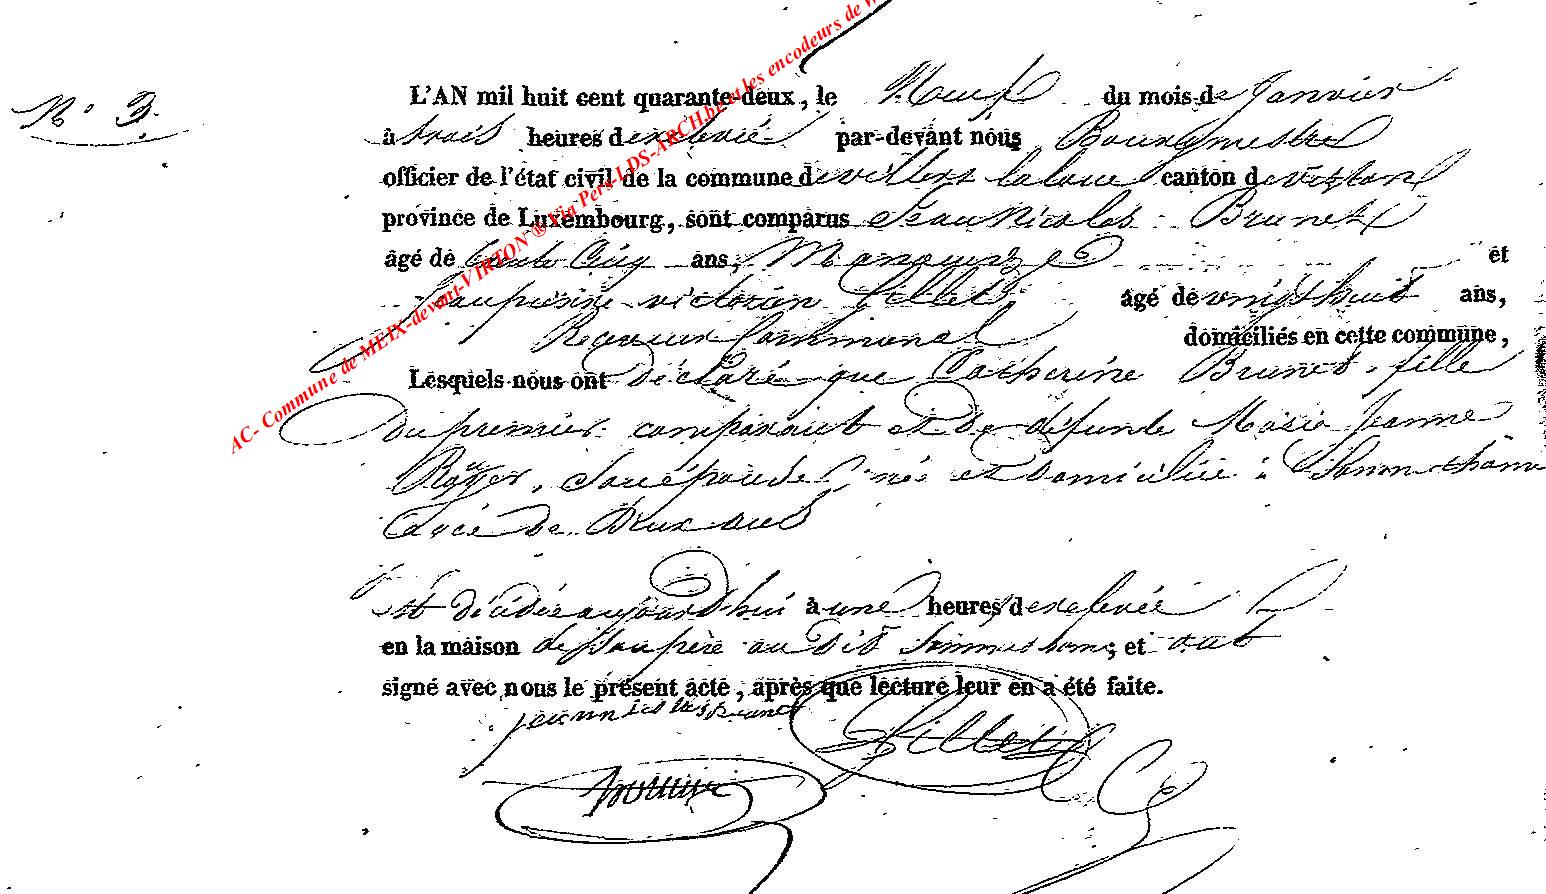 N° 3.
L'AN mil huit cent quarante-deux, le Neuf du mois de Janvier
à trois heures de relevée par-devant nous Bourgmestre
officier de l'état civil de la commune de villers la loue canton de virton
province de Luxembourg, sont comparus Jean Nicolas Brunet
âgé de ans, Manœuvre et
victorien Gillet âgé de vingt huit ans,
Receveur Communal domiciliés en cette commune,
Lesquels nous ont déclaré que Catherine Brunet, fille
du premier comparant et de defunte Marie Jeanne
Roger, née et domiciliée à
agée de Deux ans
est décédée aujourd'hui à une heures de relevée
en la maison de son père au dit Sommethonne; et ont
signé avec nous le présent acte, après que lecture leur en a été faite.
Gillet
AC- Commune de MEIX-devant-VIRTON ® Via Pers-LDS-ARCH.be et les encodeurs de